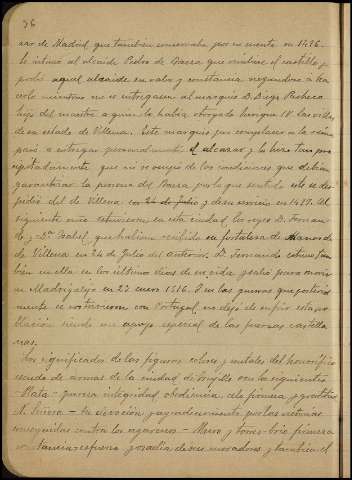 36
aro de Madrid, que tambien conservaba por su muerte en 1476.
Se intimó al alcaide Pedro de Baeza, que rindiese el castillo y
pudo aquel alcaide su valor y constancia negandose á ha
cerlo mientras no se entregasen al marqués D. Diego Pacheco
hijo del maestre a quien le habia otorgado Enrique IV. las villas
de su estado de Villena. Este marqués por complacer a la reina
pasó a entregar personalmente el alcazar y lo hizo tan pre
cipitadamente que ni se ocupó de las condiciones que debian
garantizar la persona del Baeza, por lo que sentido este se des
pidió del de Villena en 24 de Julio y de su servicio en 1477. Al
siguiente año estuvieron en esta ciudad los reyes D. Fernan
do y Dª Isabel, que habian recibido su fortaleza de manos de
de Villena en 24 de Julio del anterior. D. Fernando estuvo tam
bien en ella en los ultimos dias de su vida, y salió para morir
en Madrigalejo en 23 enero 1516. En las guerras que posterior
mente se sostuvieron con Portugal, no dejó de sufrir esta po
blacion siendo un apoyo especial de las fuerzas castella
nas.
Los significados de las figuras colores y metales del honorifico
escudo de armas de la ciudad de Trujillo son los siguientes
- Plata - pureza integridad, obediencia, celo firmeza, y gratitud
N. Señora - la devocion y agradecimiento por las victorias
conseguidas contra los agarenos - Muro y torres - brio firmeza
constancia esfuerzo y osadia de sus moradores y tambien el